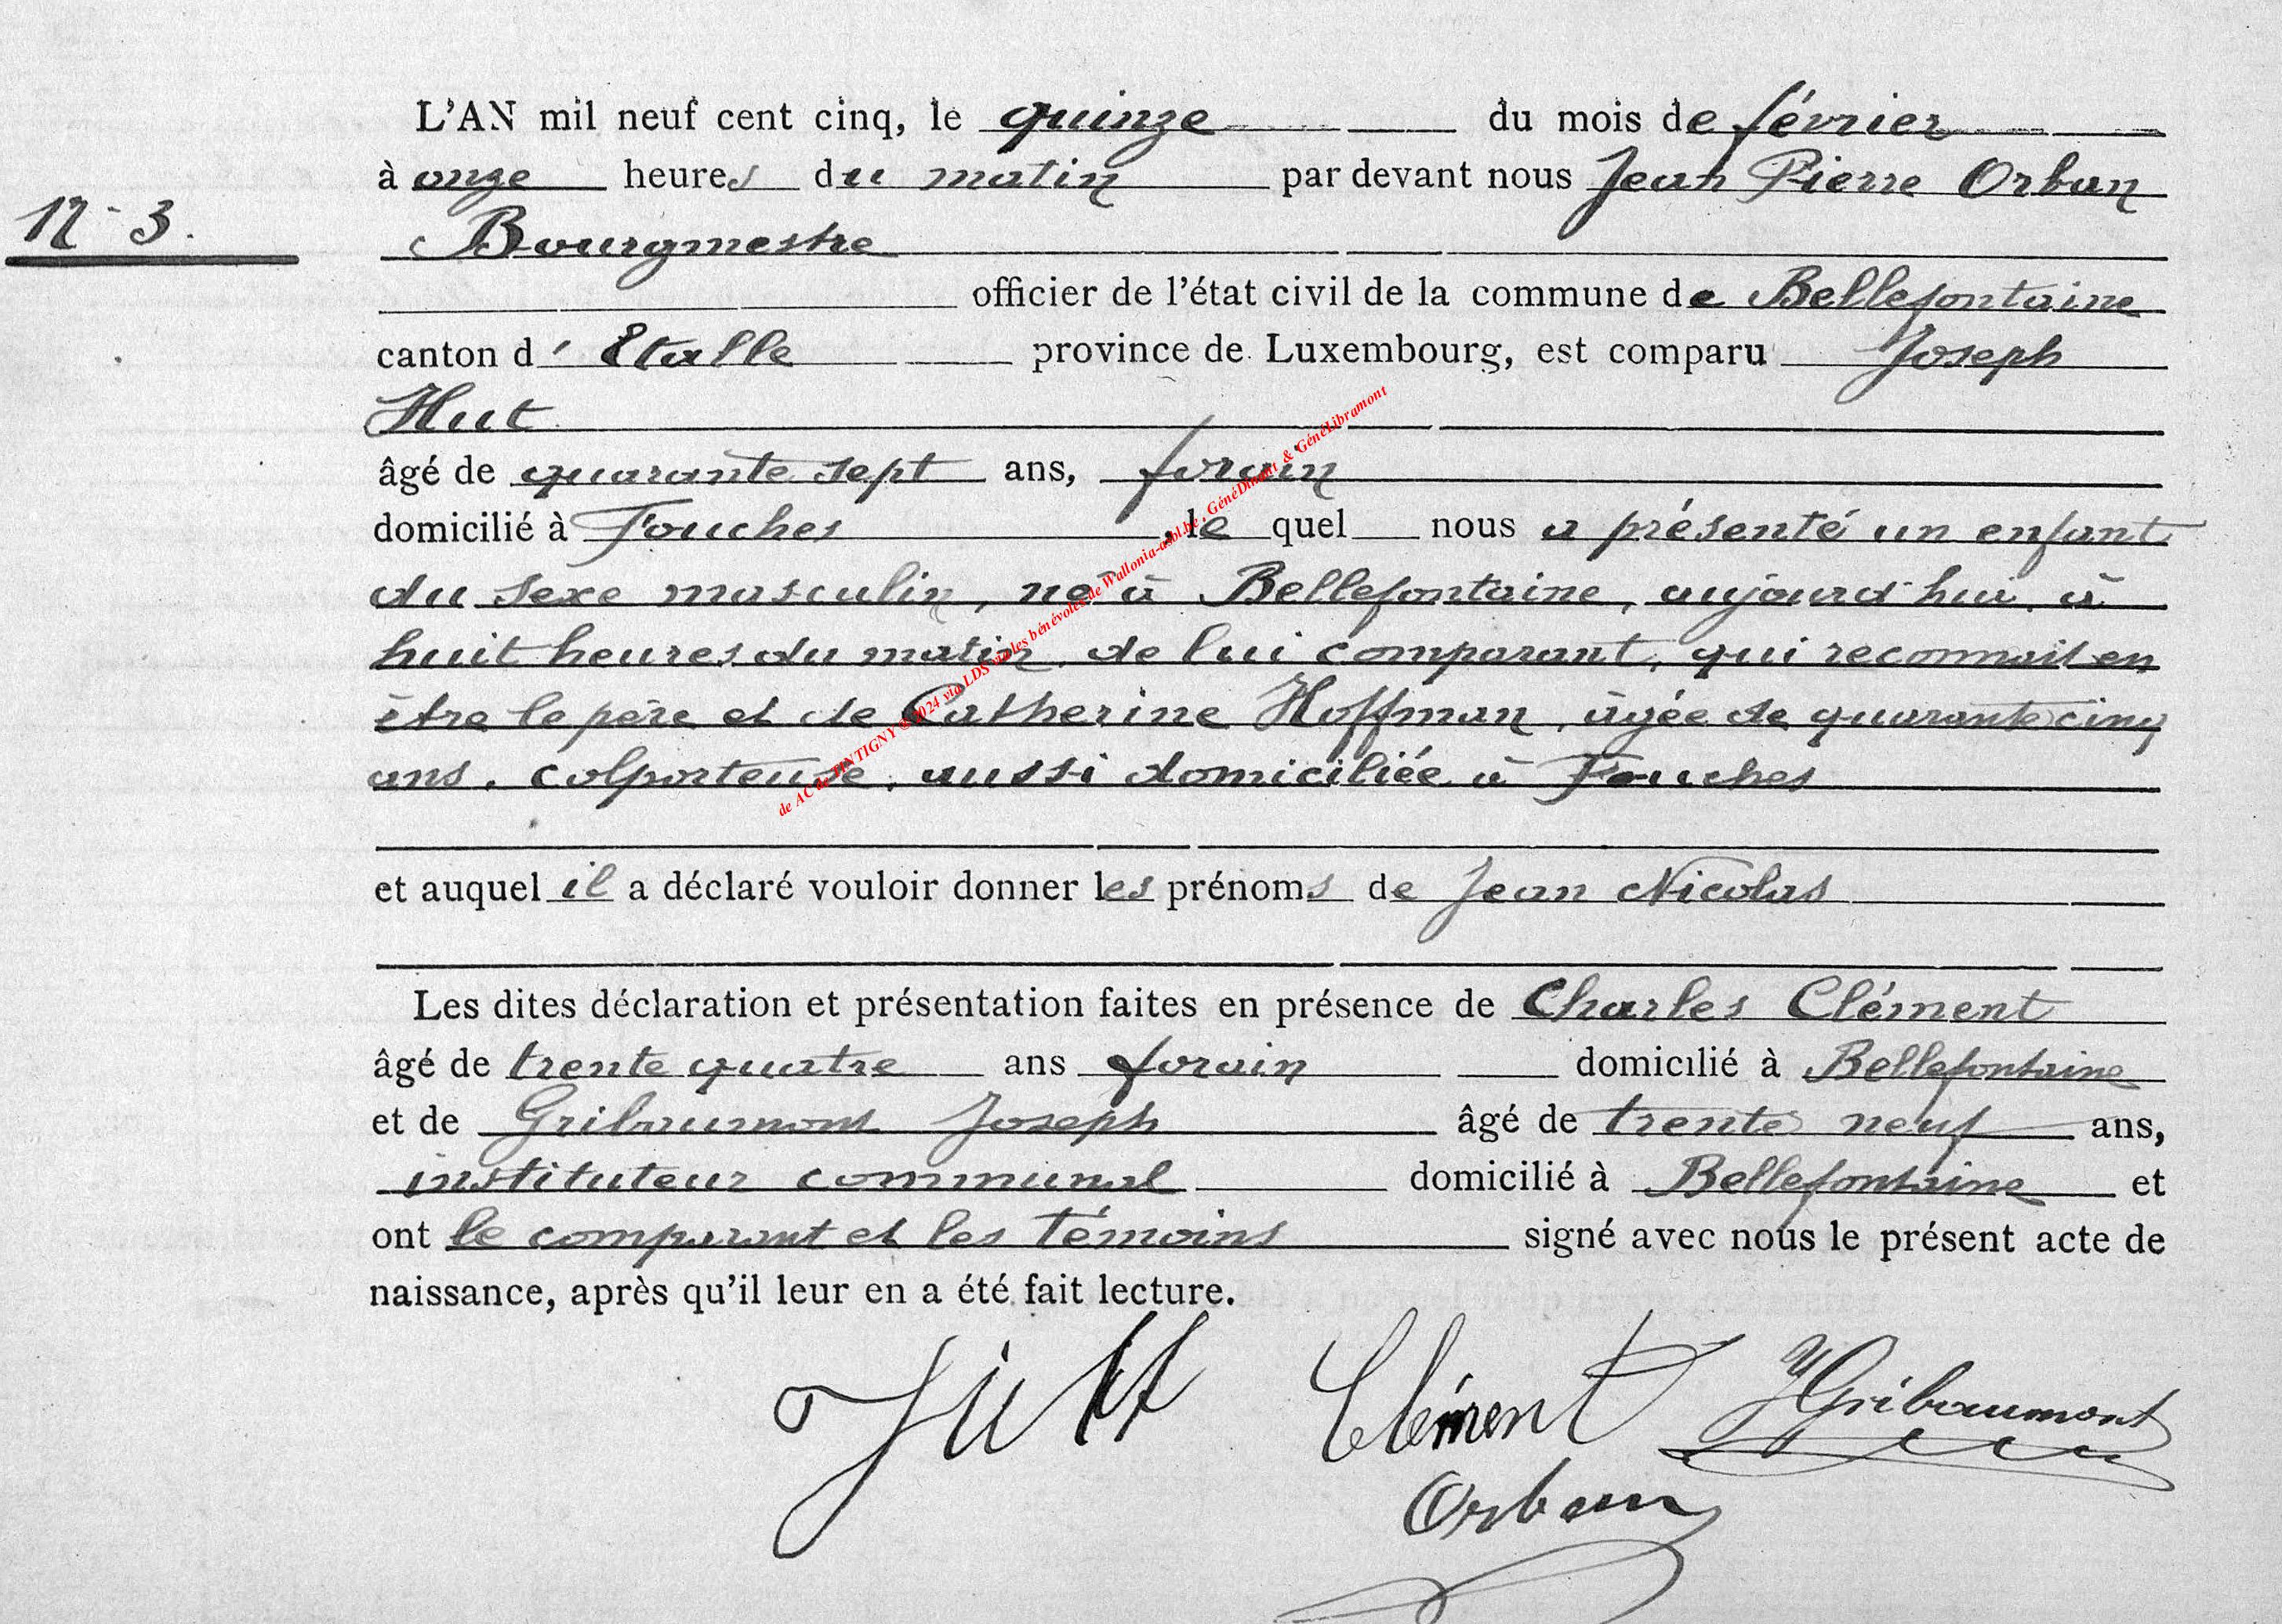 L'AN mil neuf cent cinq, le quinze du mois de février
à onze heures du matin par devant nous Jean Pierre Orban
N° 3.
Bourgmestre
officier de l'état civil de la commune de Bellefontaine
canton d' Etalle province de Luxembourg, est comparu Joseph
Hut
âgé de quarante sept ans, forain
domicilié à Fouches, le quel nous a présenté un enfant
du sexe masculin, né à Bellefontaine, aujourd'hui, à
huit heures du matin, de lui comparant, qui reconnait en
être le père et de Catherine Hoffman, âgée de quarante cinq
ans, colporteuse, aussi domiciliée à Fouches
et auquel il a déclaré vouloir donner les prénoms de Jean Nicolas
Les dites déclaration et présentation faites en présence de Charles Clément
âgé de trente quatre ans forain domicilié à Bellefontaine
et de Gribaumont Joseph âgé de trente neuf ans,
instituteur communal domicilié à Bellefontaine et
ont le comparant et les témoins signé avec nous le présent acte de
naissance, après qu'il leur en a été fait lecture.
Clément JGribaumont
Orban
de AC de TINTIGNY © 2024 via LDS via les bénévoles de Wallonia-asbl.be, GénéDinant & GénéLibramont